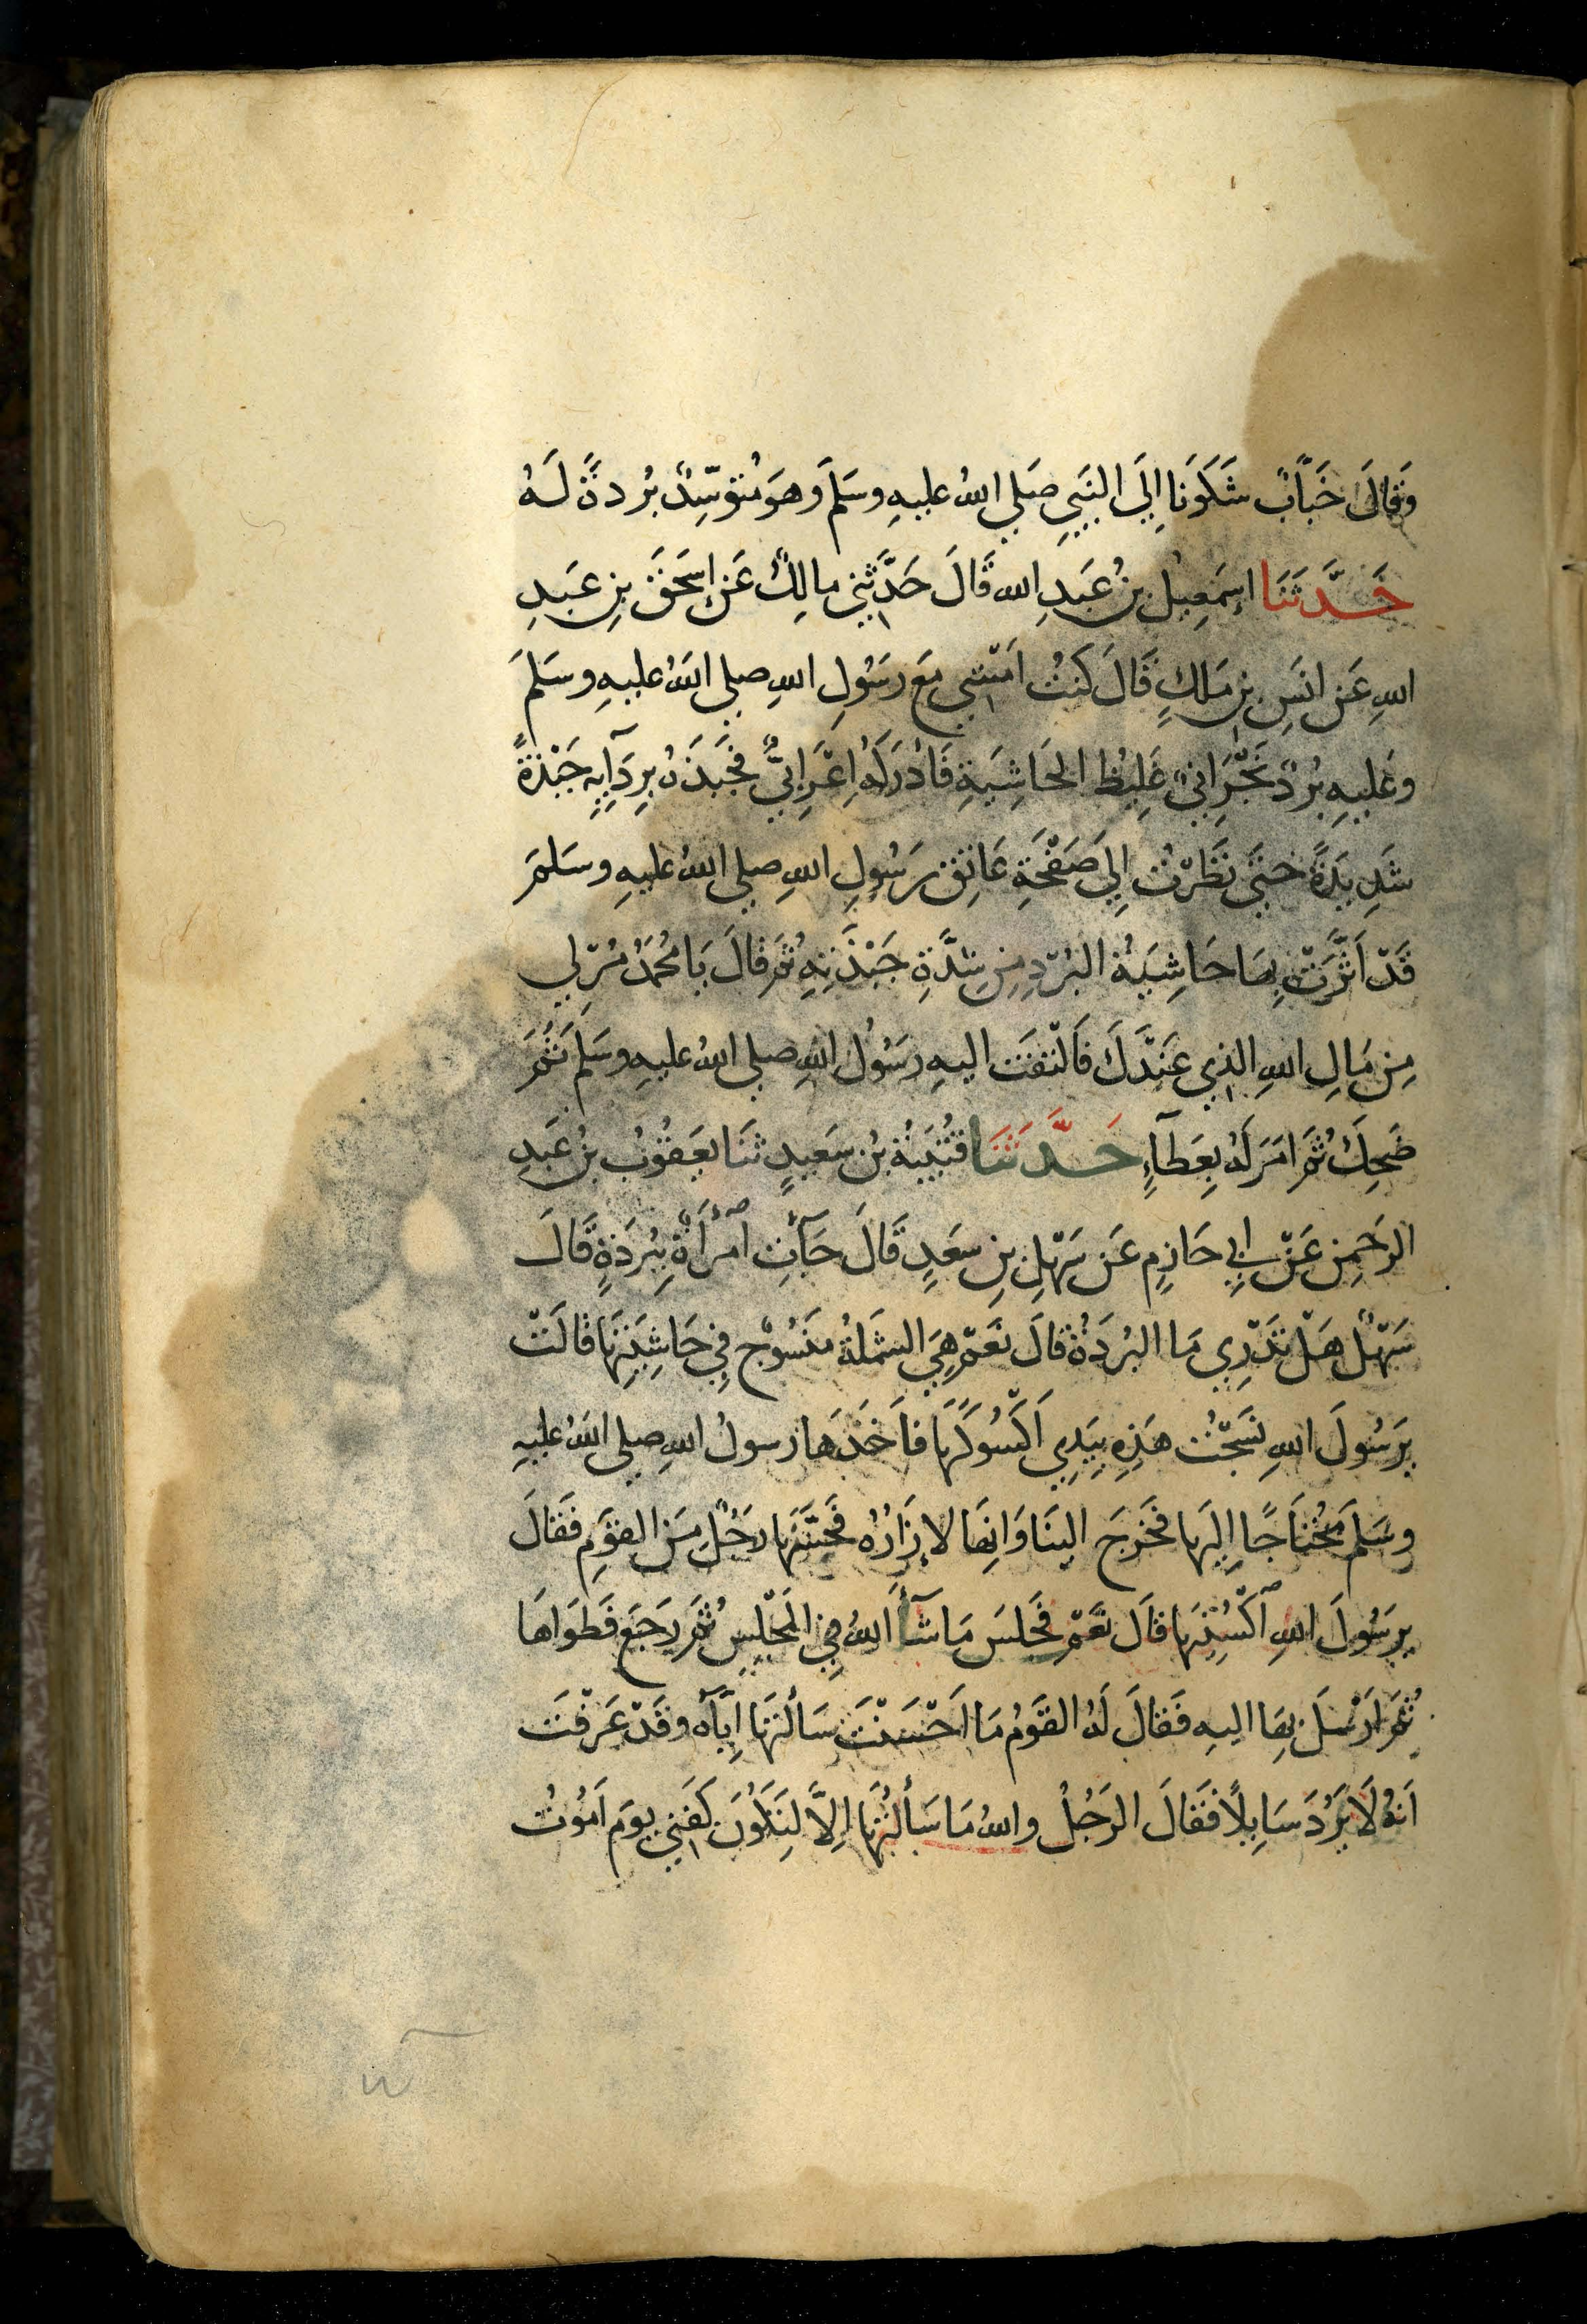 وَقَالَ خَبَّابٌ شَكَوْنَا إِلَى النَّبِيِّ صَلي اللهُ عليهِ وسَلمَ وَهوَ مُتَوَسِّدٌ بُردَةً لَهُ
حَدَّثَنَا اِسمَعِيلُ بنُ عَبدِ الله قَالَ حَدَّثَنِي مالِكٌ عَن اِسحَقَ بنِ عَبدِ
اللهِ عَن انَسِ بنِ مَلكٍ قَالَ كنتُ اَمْشي مَعَ رَسُولِ اللهِ صلي اللهُ عليهِ وسَلمَ
وعَليهِ بُردٌ نَجْرَانيٌّ غَلِيظُ الحَاشِيَةِ فَادْرَكَهُ اَعْرَابيٌّ فجَبَذَهُ بِرِدَآيِهِ جَبْذَةً
شَدِيدَةً حتَى نَظَرْتُ اِلى صَفْحَةِ عَاتِقِ رَسُولِ اللهِ صلي اللهُ عليهِ وسَلمَ
قَدْ اَثَّرَتْ بِهَا حَاشِيَةُ البُرْدِ مِن شِدَّةِ جَبْذَتِهِ ثمَ قالَ يَا مُحَمَدُ مُرْ لي
مِن مَالِ اللهِ الذي عِنْدَكَ فَالْتَفَتَ اليهِ رَسُولُ اللهِ صلي اللهُ عليهِ وسَلمَ ثُمَ
ضَحِكَ ثُمَ امَرَ لَهُ بِعَطَآءٍ حَدَّثَنَا قُتَيبَةُ بنُ سَعيدٍ ثنَا يَعقُوبُ بنُ عَبدِ
الرَحمِن عَنْ اَبي حَازِمٍ عَن سَهْلِ بنِ سعَدٍ قَالَ جَآتِ اٱمْرَأَةٌ بِبُرْدَةٍ قَالَ
سَهْلٌ هَلْ تَدْرِي مَا البُردَةُ قالَ نَعَمْ هِيَ الشَملَةُ مَنسُوجٌ فِي حَاشِيَتِهَا قالَتْ
يرَسُولَ اللهِ نَسَجْتُ هَذِهِ بِيَدِي اَكْسُوكَهَا فَاَخَذَهَا رسولُ اللهِ صلي اللهُ عليهِ
وسَلمَ مُحْتَاجًا اِليَها فخَرَجَ الينَا وَانِهَا لإِزَارُهُ فَجَسَّهَا رَجُلٌ مِنَ القَومِ فَقَالَ
يرَسُولَ اللهِ اكْسُنِيهَا قالَ نَعَمْ فَجَلسَ مَا شَآءَ اللهُ فِي المَجْلِسِ ثمَ رَجَعَ فَطوَاهَا
ثمَ ارْسَلَ بِهَا اليهِ فَقَالَ لَهُ القَومُ مَا اَحْسَنْتَ سَاَلْتَهَا اِيَّاهُ وقَدْ عَرَفْتَ
اَنهُ لَا يَرُدَ سَايِلًا فَقَالَ الرَجُلُ واللهُ مَا سَألْتُهَا اِلاَّ لِتَكُونَ كَفَنِي يومَ اَمُوتُ